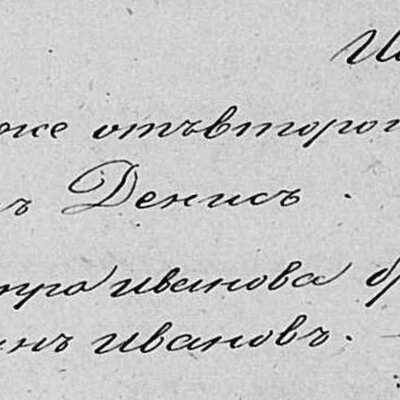 Ив
же отъ второг
ъ Денисъ .
тра Иванова б
инъ Ивановъ.